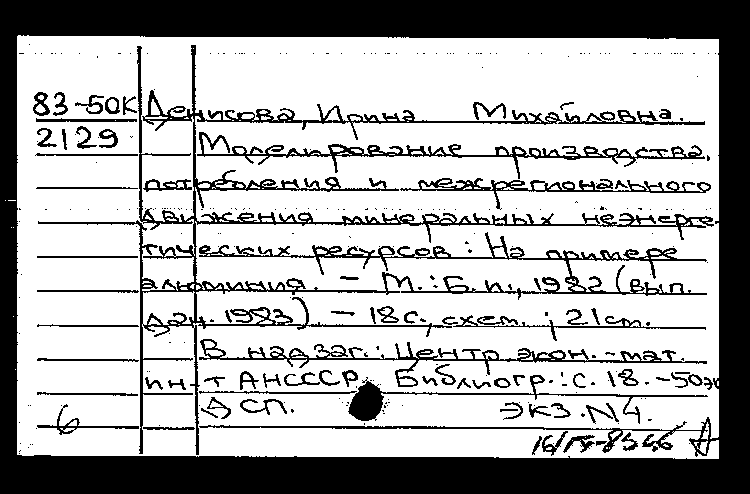 83-50К Денисова, Ирина Михайловна.
2129 Моделирование производства,
потребления и межрегионального
движения минеральных неэнерге-
тических ресурсов: На примере
алюминия. - М.: Б.и., 1982 (вып.
дан. 1983) - 18с., схем. ; 21см.
В надзаг.: Центр. экон.-мат.
ин-т АНСССР. Библиогр.: с. 18. -50эк
ДСП. ЭКЗ. N4.
6